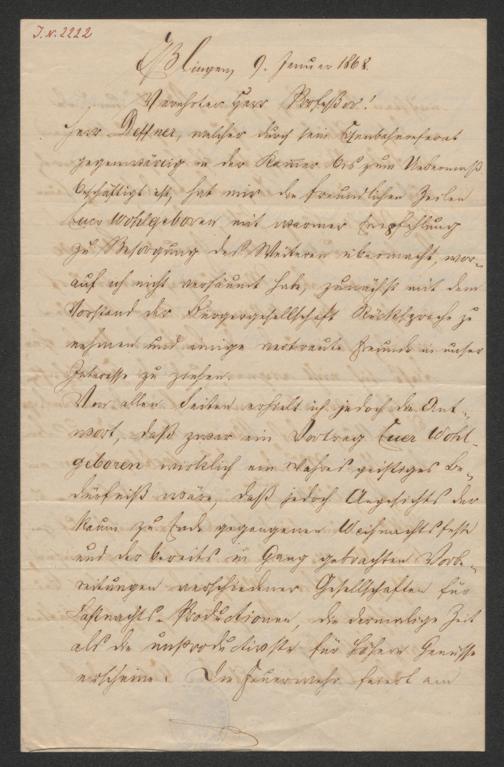 J.N. 2222
Eßlingen, 9. Januar 1868
Verehrter Herr Professor!
Herr Deffner, welcher durch sein Eisenbahnreferat
gegenwärtig in der Kammer bis zum Uebermaß
beschäftigt ist, hat mir die freundlichen Zeilen
Euer Wohlgeboren mit warmer Empfehlung
zu Besorgung des Weiteren übermacht, wor-
auf ich nicht versäumt habe, zunächst mit dem
Vorstand der Bürgergesellschaft Rücksprache zu
nehmen und einige vertraute Freunde in unser
Interesse zu ziehen.
Von allen Seiten erhielt ich jedoch die Ant-
wort, daß zwar ein Vortrag Euer Wohl-
geboren wirklich ein wahres geistiges Be-
dürfniß wäre, daß jedoch Angesichts der
kaum zu Ende gegangenen Weihnachtsfeste
und der bereits in Gang gebrachten Vorbe-
reitungen verschiedener Gesellschaften für
Fastnachts-Produktionen, die dermalige Zeit
als die unproductivste für höhere Genüsse
erscheine. Die Feuerwehr feiert am